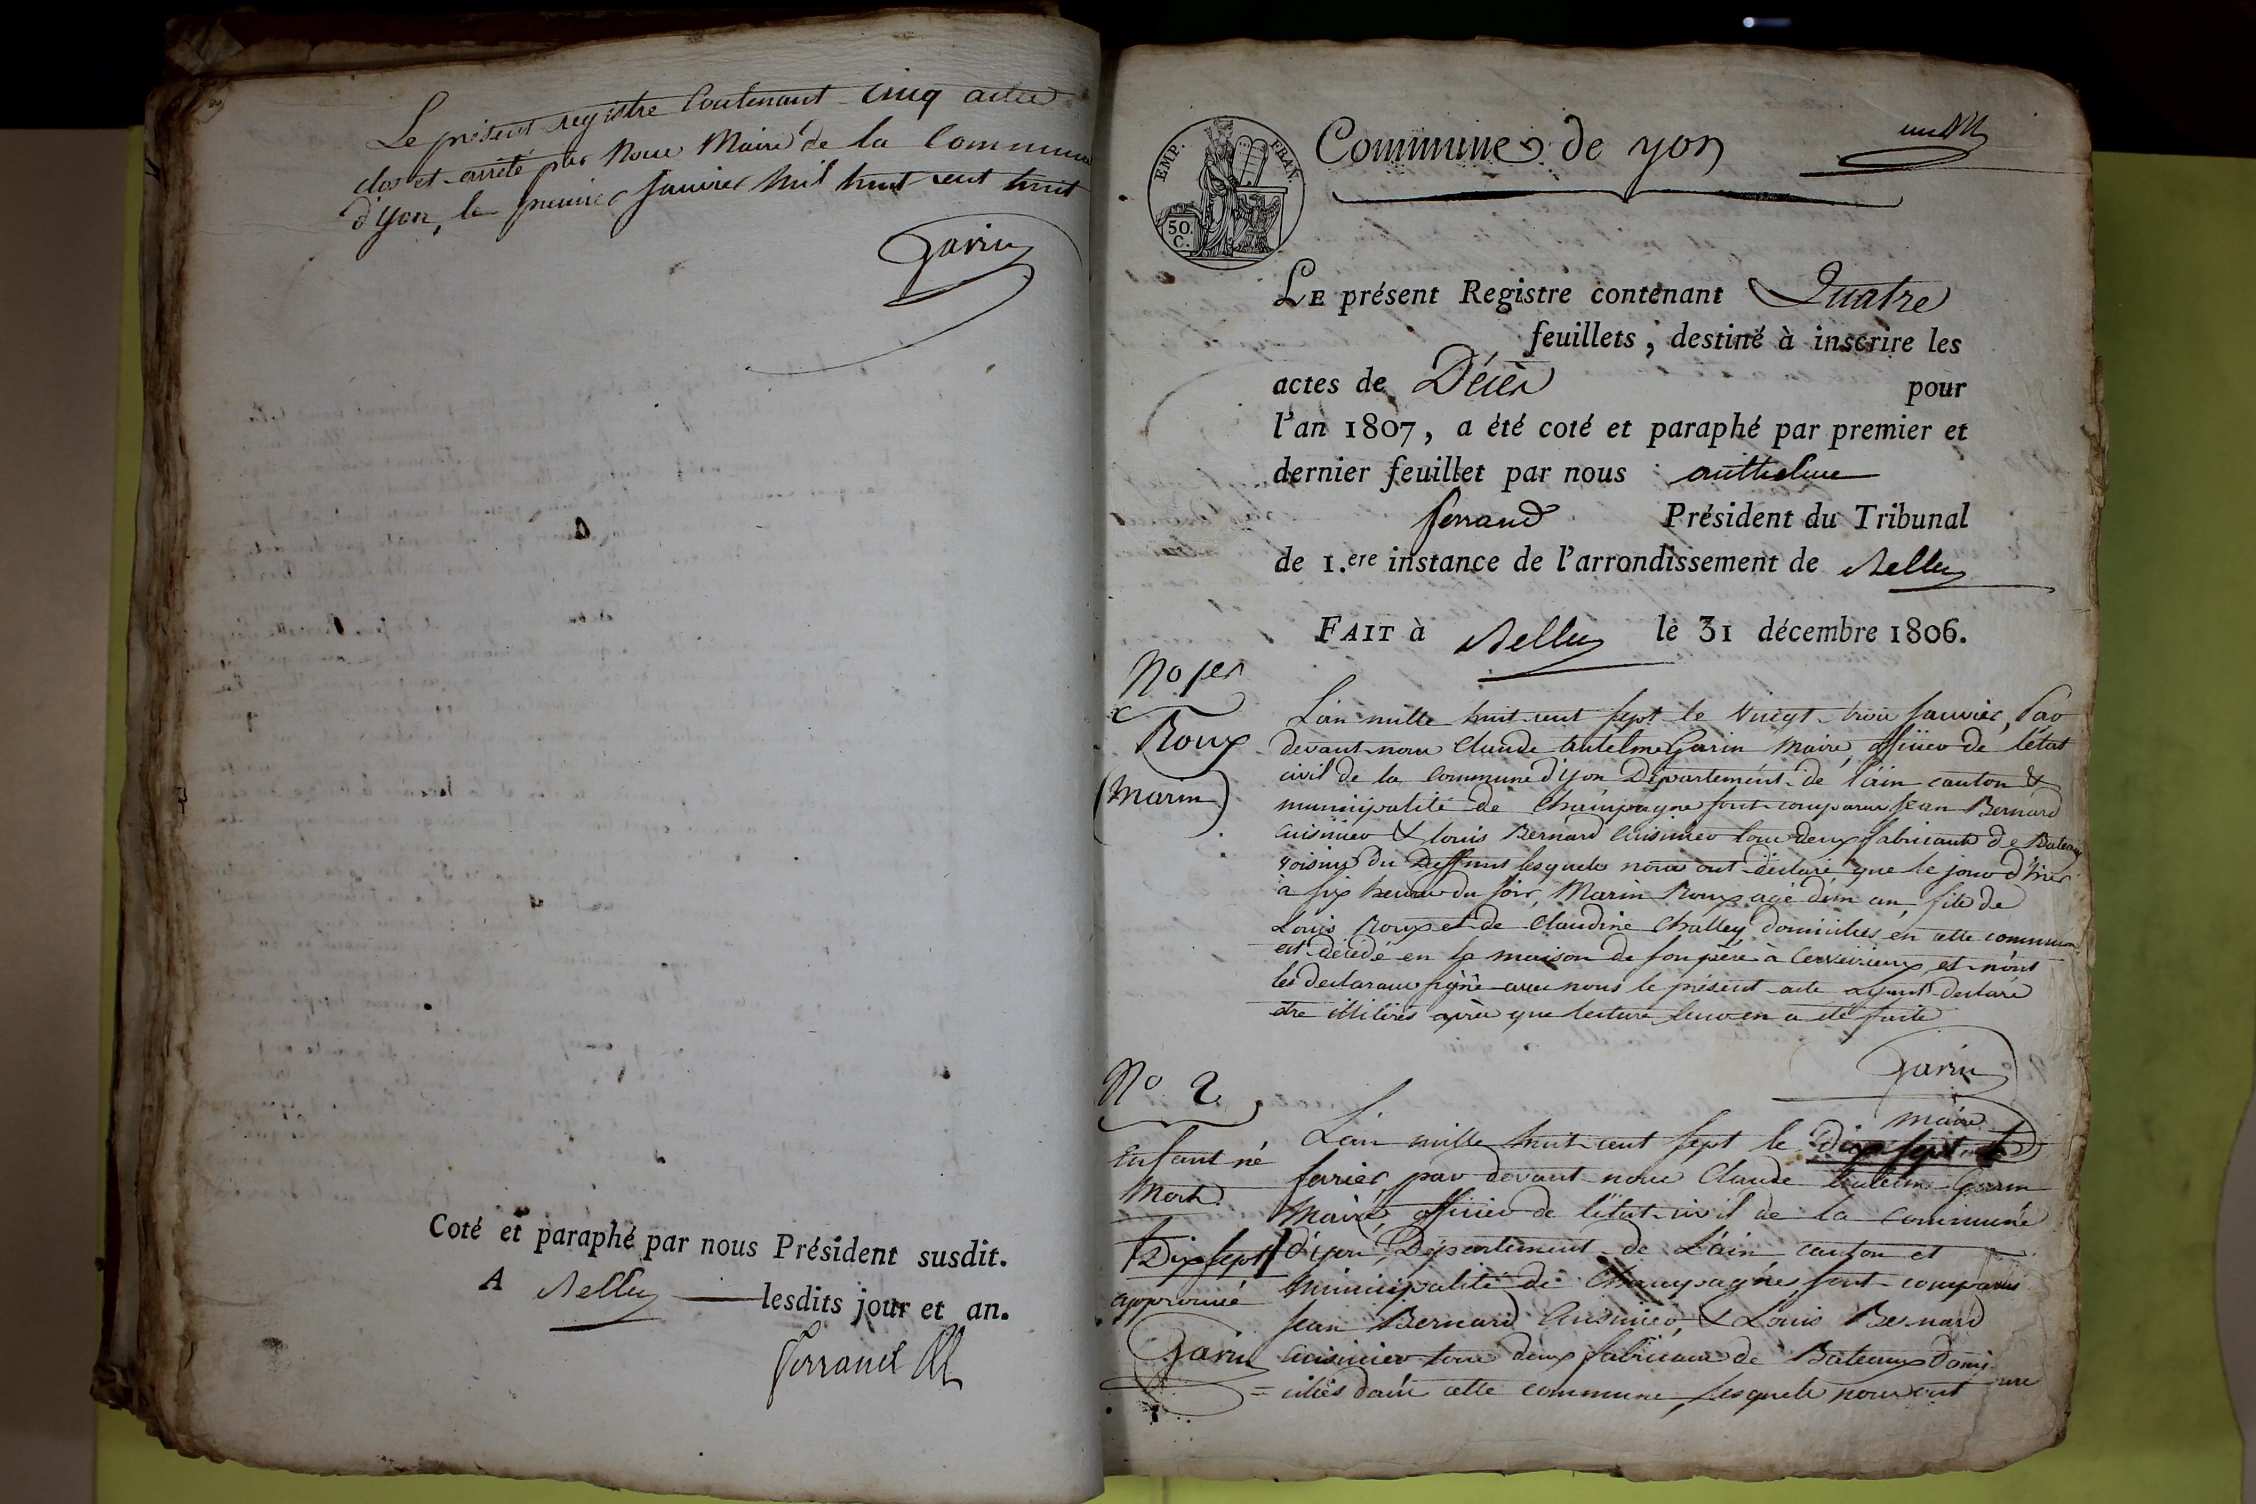 Le présent registre Contenant cinq actes
clos et arrêté par Nous Maire de la Commune
d'yon, le premier Janvier Mil huit cent huit
Garin
Coté et paraphé par nous Président susdit.
A Belley lesdits jour et an.
Ferrand
EMP. FRAN.
50. C.
Commune de yon
un
LE présent Registre contenant Quatre
feuillets, destiné à inscrire les
actes de Décès pour
l'an 1807, a été coté et paraphé par premier et
dernier feuillet par nous anthelme
ferrand Président du Tribunal
de 1.ere instance de l'arrondissement de Belley
FAIT à Belley le 31 décembre 1806.
No 1er
Roux
(Marin)
L'an mille huit cent sept le vingt trois Janvier, Par
devant nous Claude Antelme Garin Maire, officier de l'état
civil de la Commune d'yon Département de l'ain canton &
municipalité de Champagne sont comparus Jean Bernard
Cuisinier & Louis Bernard Cuisinier tous deux fabricants de Bateaux
voisins du Deffunt lesquels nous ont déclaré que le jour d'hier
à six heures du soir, Marin Roux agé d'un an, fils de
Louis Roux et de Claudine Challey domiciliés en cette commune
est décédé en la maison de son père à Cerveirieux, et n'ont
les déclarans signé avec nous le présent acte ayant déclaré
être illitérés après que lecture leur en a été faite
Garin
maire
No 2
Enfant né
Mort
Dix sept
approuvé
Garin
L'an mille huit cent sept le Dix sept
fevrier, par devant nous Claude Antelme Garin
Maire, officier de l'état civil de la Commune
d'yon, Département de L'ain canton et
Municipalité de Champagne, sont comparus
Jean Bernard Cuisinier, & Louis Bernard
Cuisinier tous deux fabricans de Bateaux domi
= ciliés dans cette commune, Lesquels nous ont